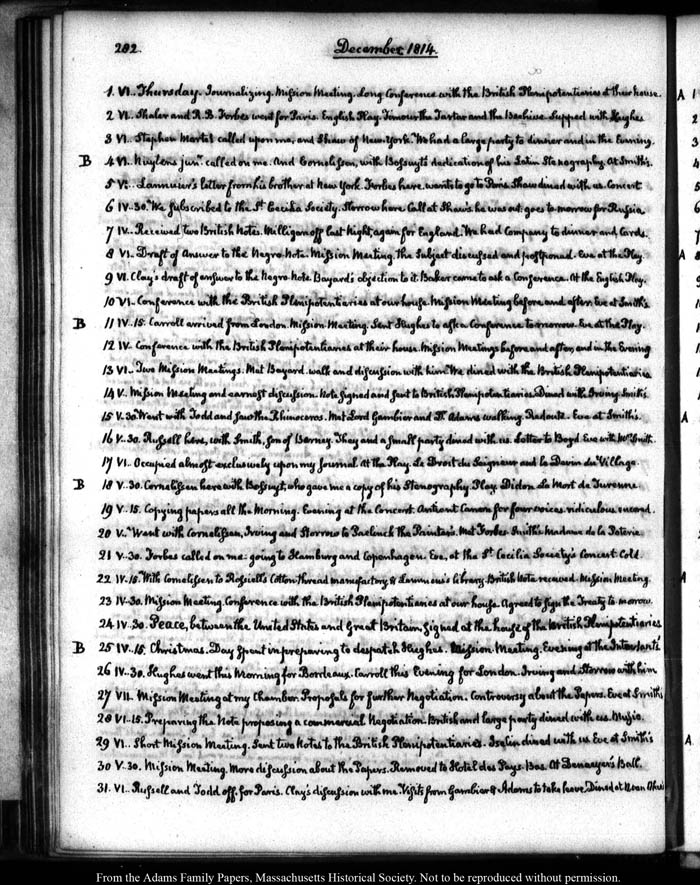 282.
December 1814.
1. VI.. Thursday. Journalizing. Mission Meeting. Long Conference with the British Plenipotentiaries at their house.
2 VI.. Shaler and R.B. Forbes went for Paris. English Play. Timour the Tartar and the Beehive. Supped with Hughes
3 VI.. Stephen Martel called upon me, and Shaw of New York. We had a large party to dinner and in the Evening.
B 4 VI. Nuytens junr. called on me. And Cornelissen, with Bossuyt's dedication of his Latin Stenography. At Smith's.
5 V:.. Lannuier's letter from his brother at New York. Forbes here. wants to go to Paris. Shaw dined with us. Concert
6 IV.30. We subscribed to the St. Cecilia Society. Storrow here. Call at Shaw's. he was out. goes to morrow for Russia
7 IV.. Received two British Notes. Milligan off last Night, again for England. We had Company to dinner and Cards.
8 VI.. Draft of Answer to the Negro-Note. Mission Meeting. The Subject discussed and postponed. Eve at the Play.
9 VI. Clay's draft of answer to the Negro Note. Bayard's objection to it. Baker came to ask a Conference. At the English Play.
10 VI.. Conference with the British Plenipotentiaries at our house. Mission Meeting before and after. Eve at Smith's
B 11 IV.15. Carroll arrived from London. Mission Meeting. Sent Hughes to ask a Conference to morrow. Eve at the Play.
12 IV. Conference with the British Plenipotentiaries at their house. Mission Meetings before and after, and in the Evening
13 VI.. Two Mission Meetings. Met Bayard. walk and discussion with him. We dined with the British Plenipotentiaries
14 V. Mission Meeting and earnest discussion. Note signed and sent to British Plenipotentiaries. Dined with Irving. Smith's
15 V.30. Went with Todd and saw the Rhinoceros. Met Lord Gambier and Dr. Adams walking. Redoute. Eve at Smith's.
16 V.30. Russell here, with Smith, son of Barney. They and a small party dined with us. Letter to Boyd. Eve with Mrs. Smith.
17 VI. Occupied almost exclusively upon my Journal. At the Play. Le Droit du Seigneur and le Devin du Village.
B 18 V.30. Cornelissen here with Bossuyt, who gave me a copy of his Stenography. Play. Didon. La Mort de Turenne.
19 V.15. Copying papers all the Morning. Evening at the Concert. Antient Canon for four voices. ridiculous record.
20 V.. Went with Cornelissen, Irving and Storrow to Paelinck the Painter's. Met Forbes. Smith's. Madame de la Poterie
21 V.30. Forbes called on me. going to Hamburg and Copenhagen. Eve, at the St. Cecilia Society's Concert. Cold.
22 IV.15. With Cornelissen to Rosseel's Cotton thread manufactory, & Lammens's library. British Note received. Mission Meeting.
23 IV.30. Mission Meeting. Conference with the British Plenipotentiaries at our house. Agreed to sign the Treaty to morrow.
24 IV.30. Peace, between the United States and Great Britain, signed at the house of the British Plenipotentiaries
B 25 IV.15. Christmas. Day spent in preparing to despatch Hughes. Mission Meeting. Evening at the Intendant's
26 IV.30. Hughes went this Morning for Bordeaux. Carroll this Evening for London. Irving and Storrow with him
27 VII. Mission Meeting at my Chamber. Proposals for further Negotiation. Controversy about the Papers. Eve at Smith's
28 VI.15. Preparing the Note proposing a commercial Negotiation. British and large party dined with us. Music.
29 VI.. Short Mission Meeting. Sent two Notes to the British Plenipotentiaries. Iselin dined with us. Eve at Smith's
30 V.30. Mission Meeting. More discussion about the Papers. Removed to Hotel des Pays-Bas. At Denaeyer's Ball.
31. VI.. Russell and Todd off, for Paris. Clay's discussion with me. Visits from Gambier & Adams to take leave. Dined at
From the Adams Family Papers, Massachusetts Historical Society. Not to be reproduced without permission.